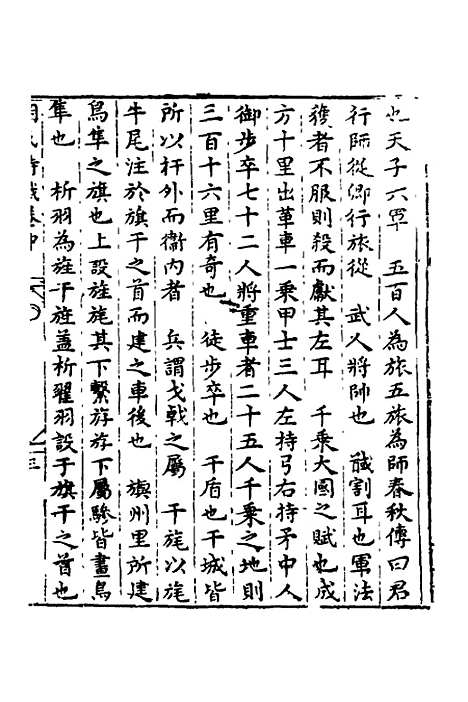 也天子六軍　五百人為旅五旅為師春秋傳曰君
行師從卿行旅從　武人將帥也　馘割耳也軍法
獲者不服則殺而獻其左耳　千乘大國之賦也成
方十里出革車一乘甲士三人左持弓右持矛中人
御步卒七十二人將重車者二十五人千乘之地則
三百十六里有奇也　徒步卒也　干盾也干城皆
所以扞外而衛內者　兵謂戈戟之屬　干旄以旄
牛尾注於旗干之首而建之車後也　旟州里所建
鳥隼之旗也上設旌旄其下繫斿斿下屬縿皆畫鳥
隼也　析羽為旌干旌蓋析翟羽設于旗干之首也